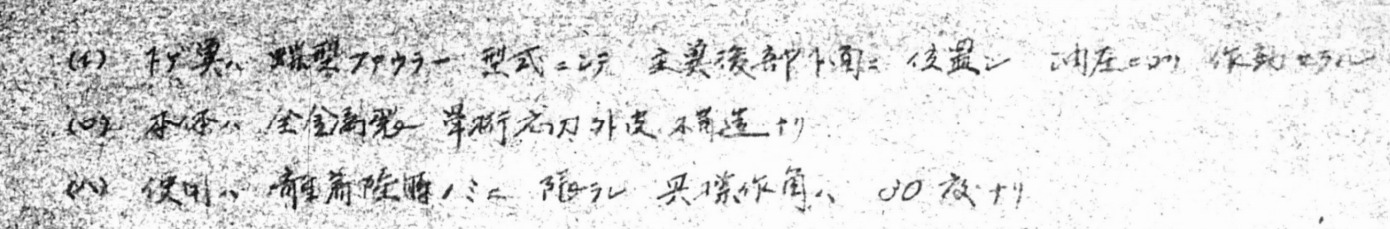 (イ) 下ゲ翼ハ 蝶型ファウラー 型式ニシテ 主翼後部下面ニ 位置シ 油圧ニヨリ 作動セラル
(ロ) 本体ハ 全金属製 單桁応力外皮 構造ナリ
(ハ) 使用ハ 離着陸時ノミニ 限ラレ 其操作角ハ 30度ナリ